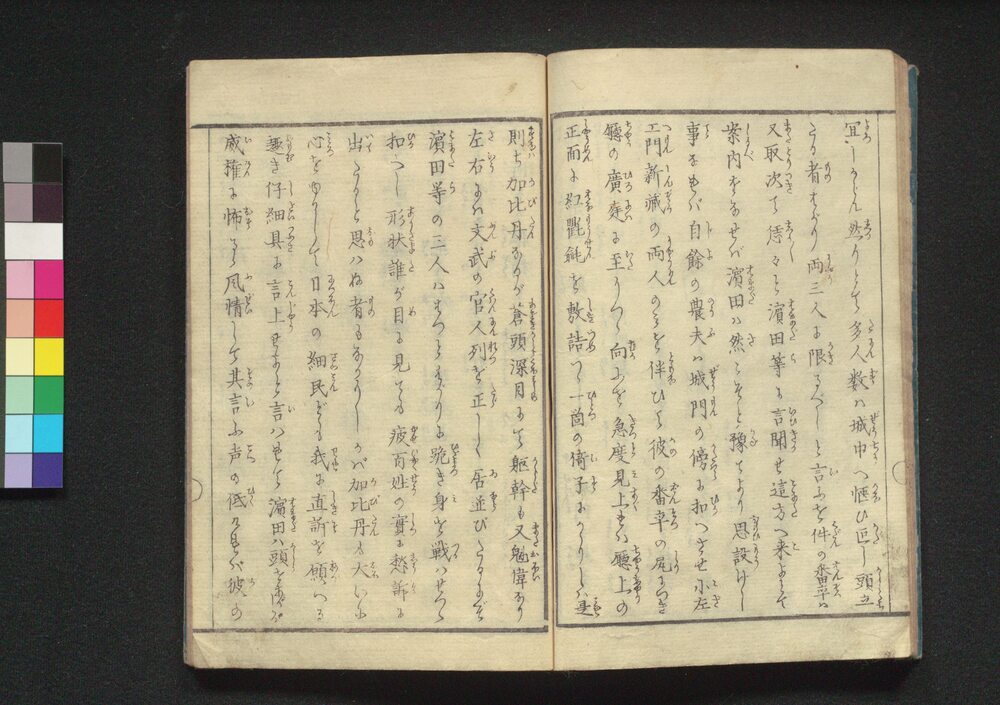 宜しからん然りとても多人数は城中へ悝ひ叵し頭立
たる者ばかり両三人に限るべしと言ふを件の番卒は
又取次て恁々と濱田等に言聞せ這方へ来よとて
案内するなれば濱田は然こそと豫てより思設けし
事なれば自餘の農夫は城門の傍に扣へさせ小左
エ門新蔵の両人のみを伴ひて彼の番卒の尻につき
廳の廣庭に至りつゝ向ふを急度見上れば廳上の
正面に紅氍毹を敷詰つゝ一箇の倚子にかゝりしは是
則ち加比丹ならんが蒼頭深目にして躯幹も又魁偉なり
左右には文武の官人列を正しく居並びたるにぞ
濱田等の三人はまづうづくまりに跪き身を戦はせつゝ
扣へし形状誰が目に見ても疲百姓の實に愁訴に
出たりと思はぬ者もなかりしかば加比丹も大いに
心をゆるして日本の細民ども我に直訴を願へる
趣き仔細具に言上せよと言はれて濱田は頭を擡げ
威権に怖るゝ風情して其言ふ声の低ければ彼の